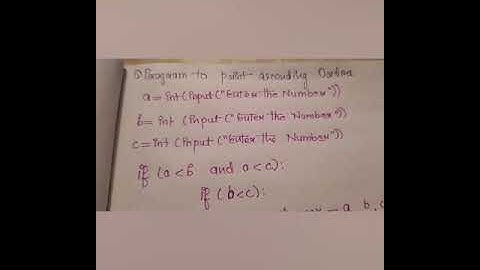 ① Program to print ascending Order
a = int(input("Enter the Number"))
b = int (input ("Enter the Number"))
c = int (input ("Enter the Number"))
if (a<b and a<c):
if (b<c):
a, b, c